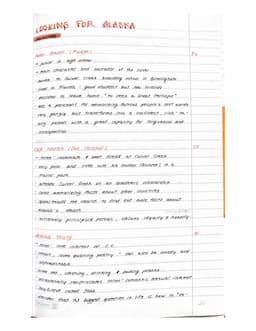 LOOKING FOR ALASKA
Miles Halter (Pudge)
- junior in high school
- main character and narrator of the novel
- moves to Culver Creek boarding school in Birmingham
- lived in Florida: good student but few friends
- decides to leave home "to seek a Great Perhaps"
- has a penchant for memorizing famous people's last words
- very people but transforms into a confident, risk-
person with a great capacity for forgiveness and
introspection
Chip Martin (The Colonel)
- Miles' roommate & best friend at Culver Creek
- very poor and lives with his mother (Dolores) in a
trailer park
- attends Culver Creek on an academic scholarship
- loves memorizing facts about other countries
- spearheads the search to find out more facts about
Alaska's death
- extremely principled person, values loyalty & honesty
Alaska Young
- Miles' love interest at C.C.
- smart, loves quoting poetry
unpredictable
- loves sex, learning, drinking & pulling pranks
- intentionally mispronounces Miles'
boyfriend named Jake
- decides that the biggest question in life is how to